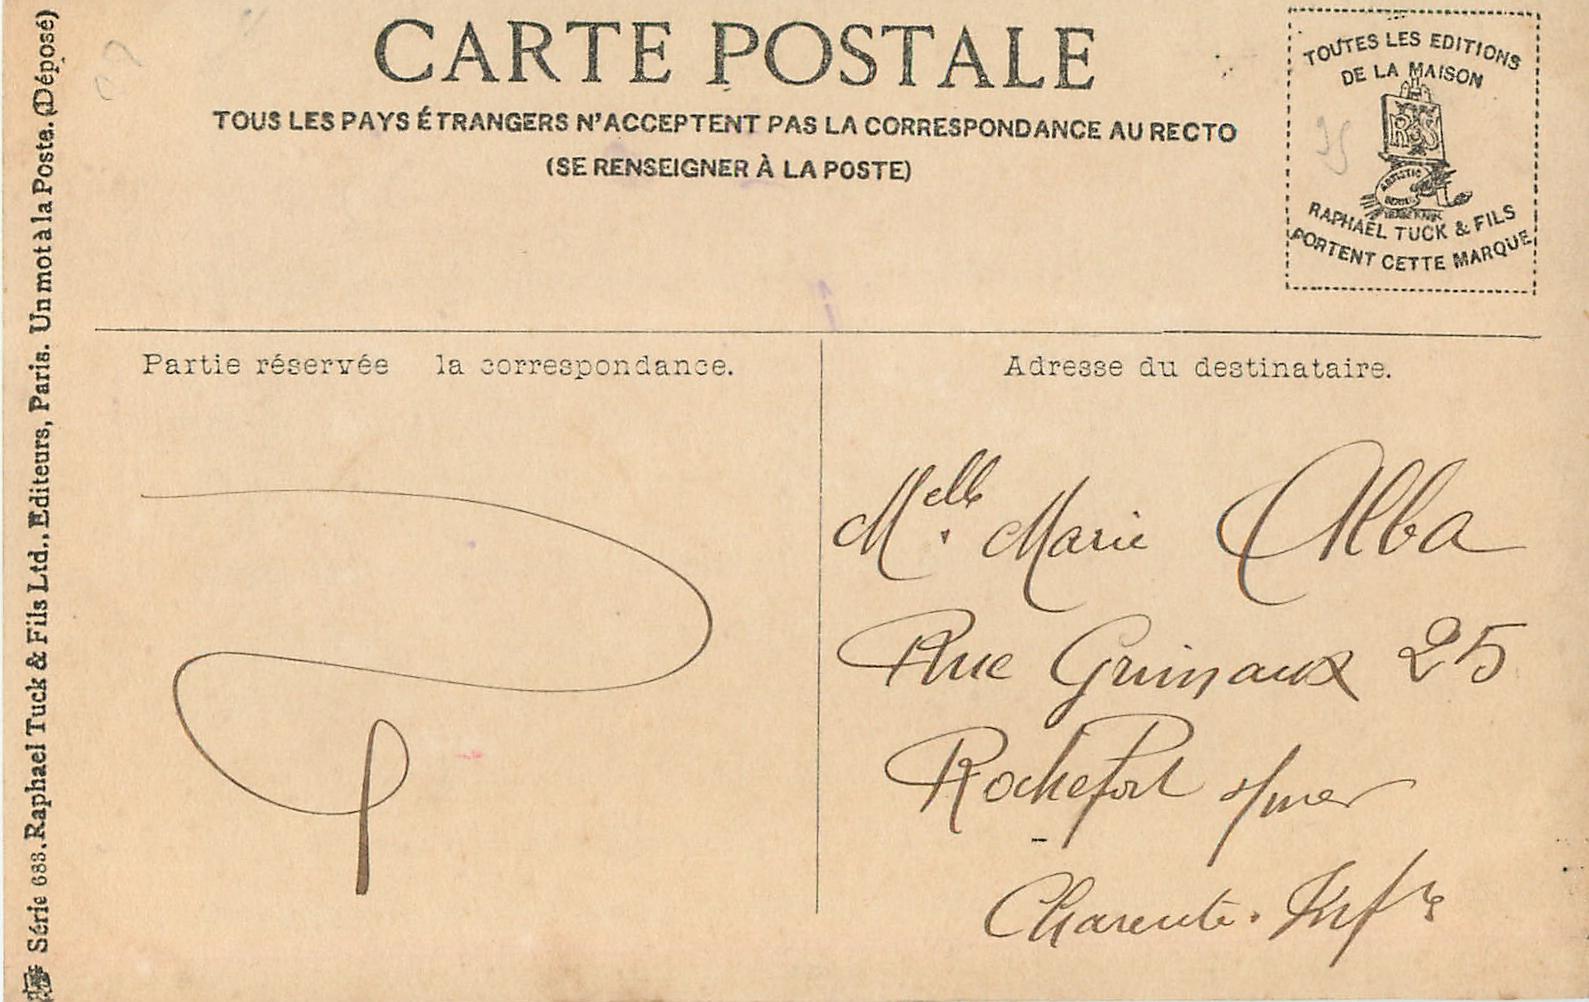 CARTE POSTALE
TOUS LES PAYS ÉTRANGERS N'ACCEPTENT PAS LA CORRESPONDANCE AU RECTO
(SE RENSEIGNER À LA POSTE)
TOUTES LES EDITIONS
DE LA MAISON
R T S
ARTISTIC
RAPHAËL TUCK & FILS
PORTENT CETTE MARQUE
Série 683. Raphael Tuck & Fils Ltd., Editeurs, Paris. Un mot à la Poste. (Déposé)
Partie réservée la correspondance.
Adresse du destinataire.
Melle. Marie Alba
Rue Grimaux 25
Rochefort s/mer
Charente. Infre